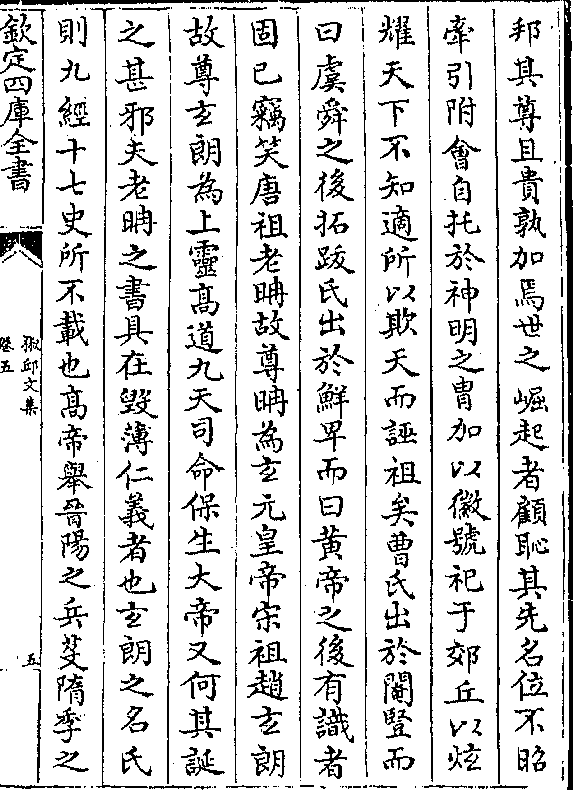 邦其尊且貴孰加焉世之崛起者顧恥其先名位不昭
牽引附會自托於神明之胄加以徽號祀于郊丘以炫
耀天下不知適所以欺天而誣祖矣曹氏出於閹豎而
曰虞舜之後拓跋氏出於鮮卑而曰黄帝之後有識者
固已竊笑唐祖老聃故尊聃為玄元皇帝宋祖趙玄朗
故尊玄朗為上靈髙道九天司命保生大帝又何其誕
之甚邪夫老聃之書具在毀薄仁義者也玄朗之名氏
則九經十七史所不載也髙帝舉晉陽之兵芟隋季之
欽定四庫全書
猴邱文集
卷五
五